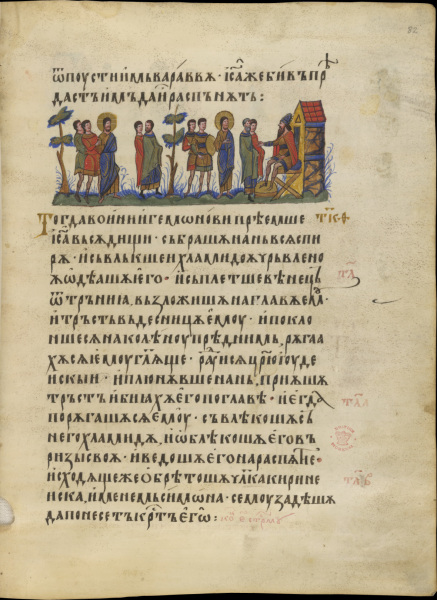 82
ѿпоустиимьвараввѫ · іс҃ажебивъпрѣ
дастъимьдаи҆распънѫть :
Тогдавоиниигемѡновипрѣемше
іс҃авъсѫдищи · събрашѧнаньвсѧспи
рѫ · исъвлъкшеихламидоѫчрьвлено
ѫѡдѣашѧиего · исъплетшевѣнець
ѿтръниа, възложишѧнаглавѫемꙋ
итръстьвъдесницѫемоу · ипокло
ншесѧнаколѣноупрѣднимь, рѫгаа
хѫсѧемоугл҃ѧще · раⷣуисѧцр҃юіоуде
искыи · иплюнѫвшенань, приѧшѧ
тръстьибиахѫегопоглавѣ · иегда
порѫгашѧсѧемоу · съвлѣкошѧсъ
негохламидѫ, иѡблѣкошѧеговъ
ризысвоѧ · иведошѧегонараспѧтїе
исходѧщежеобрѣтошѧчл҃какирине
иска, именемьсимѡна · семоузадѣшѧ
дапонесетькрⷭ҇тъегѡ :